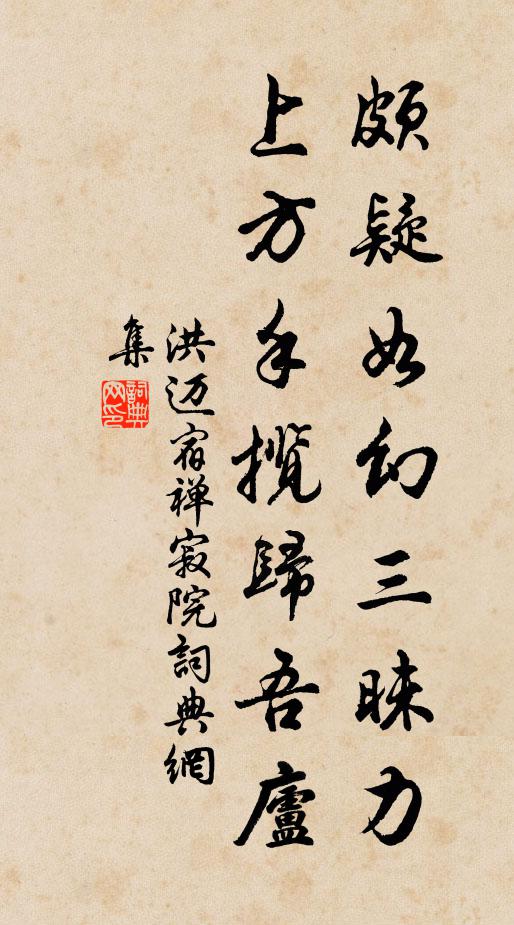 頗疑如幻三昧力
上方手攬歸吾廬
洪迈宿禅寂院詞典網
集
詞典
网印